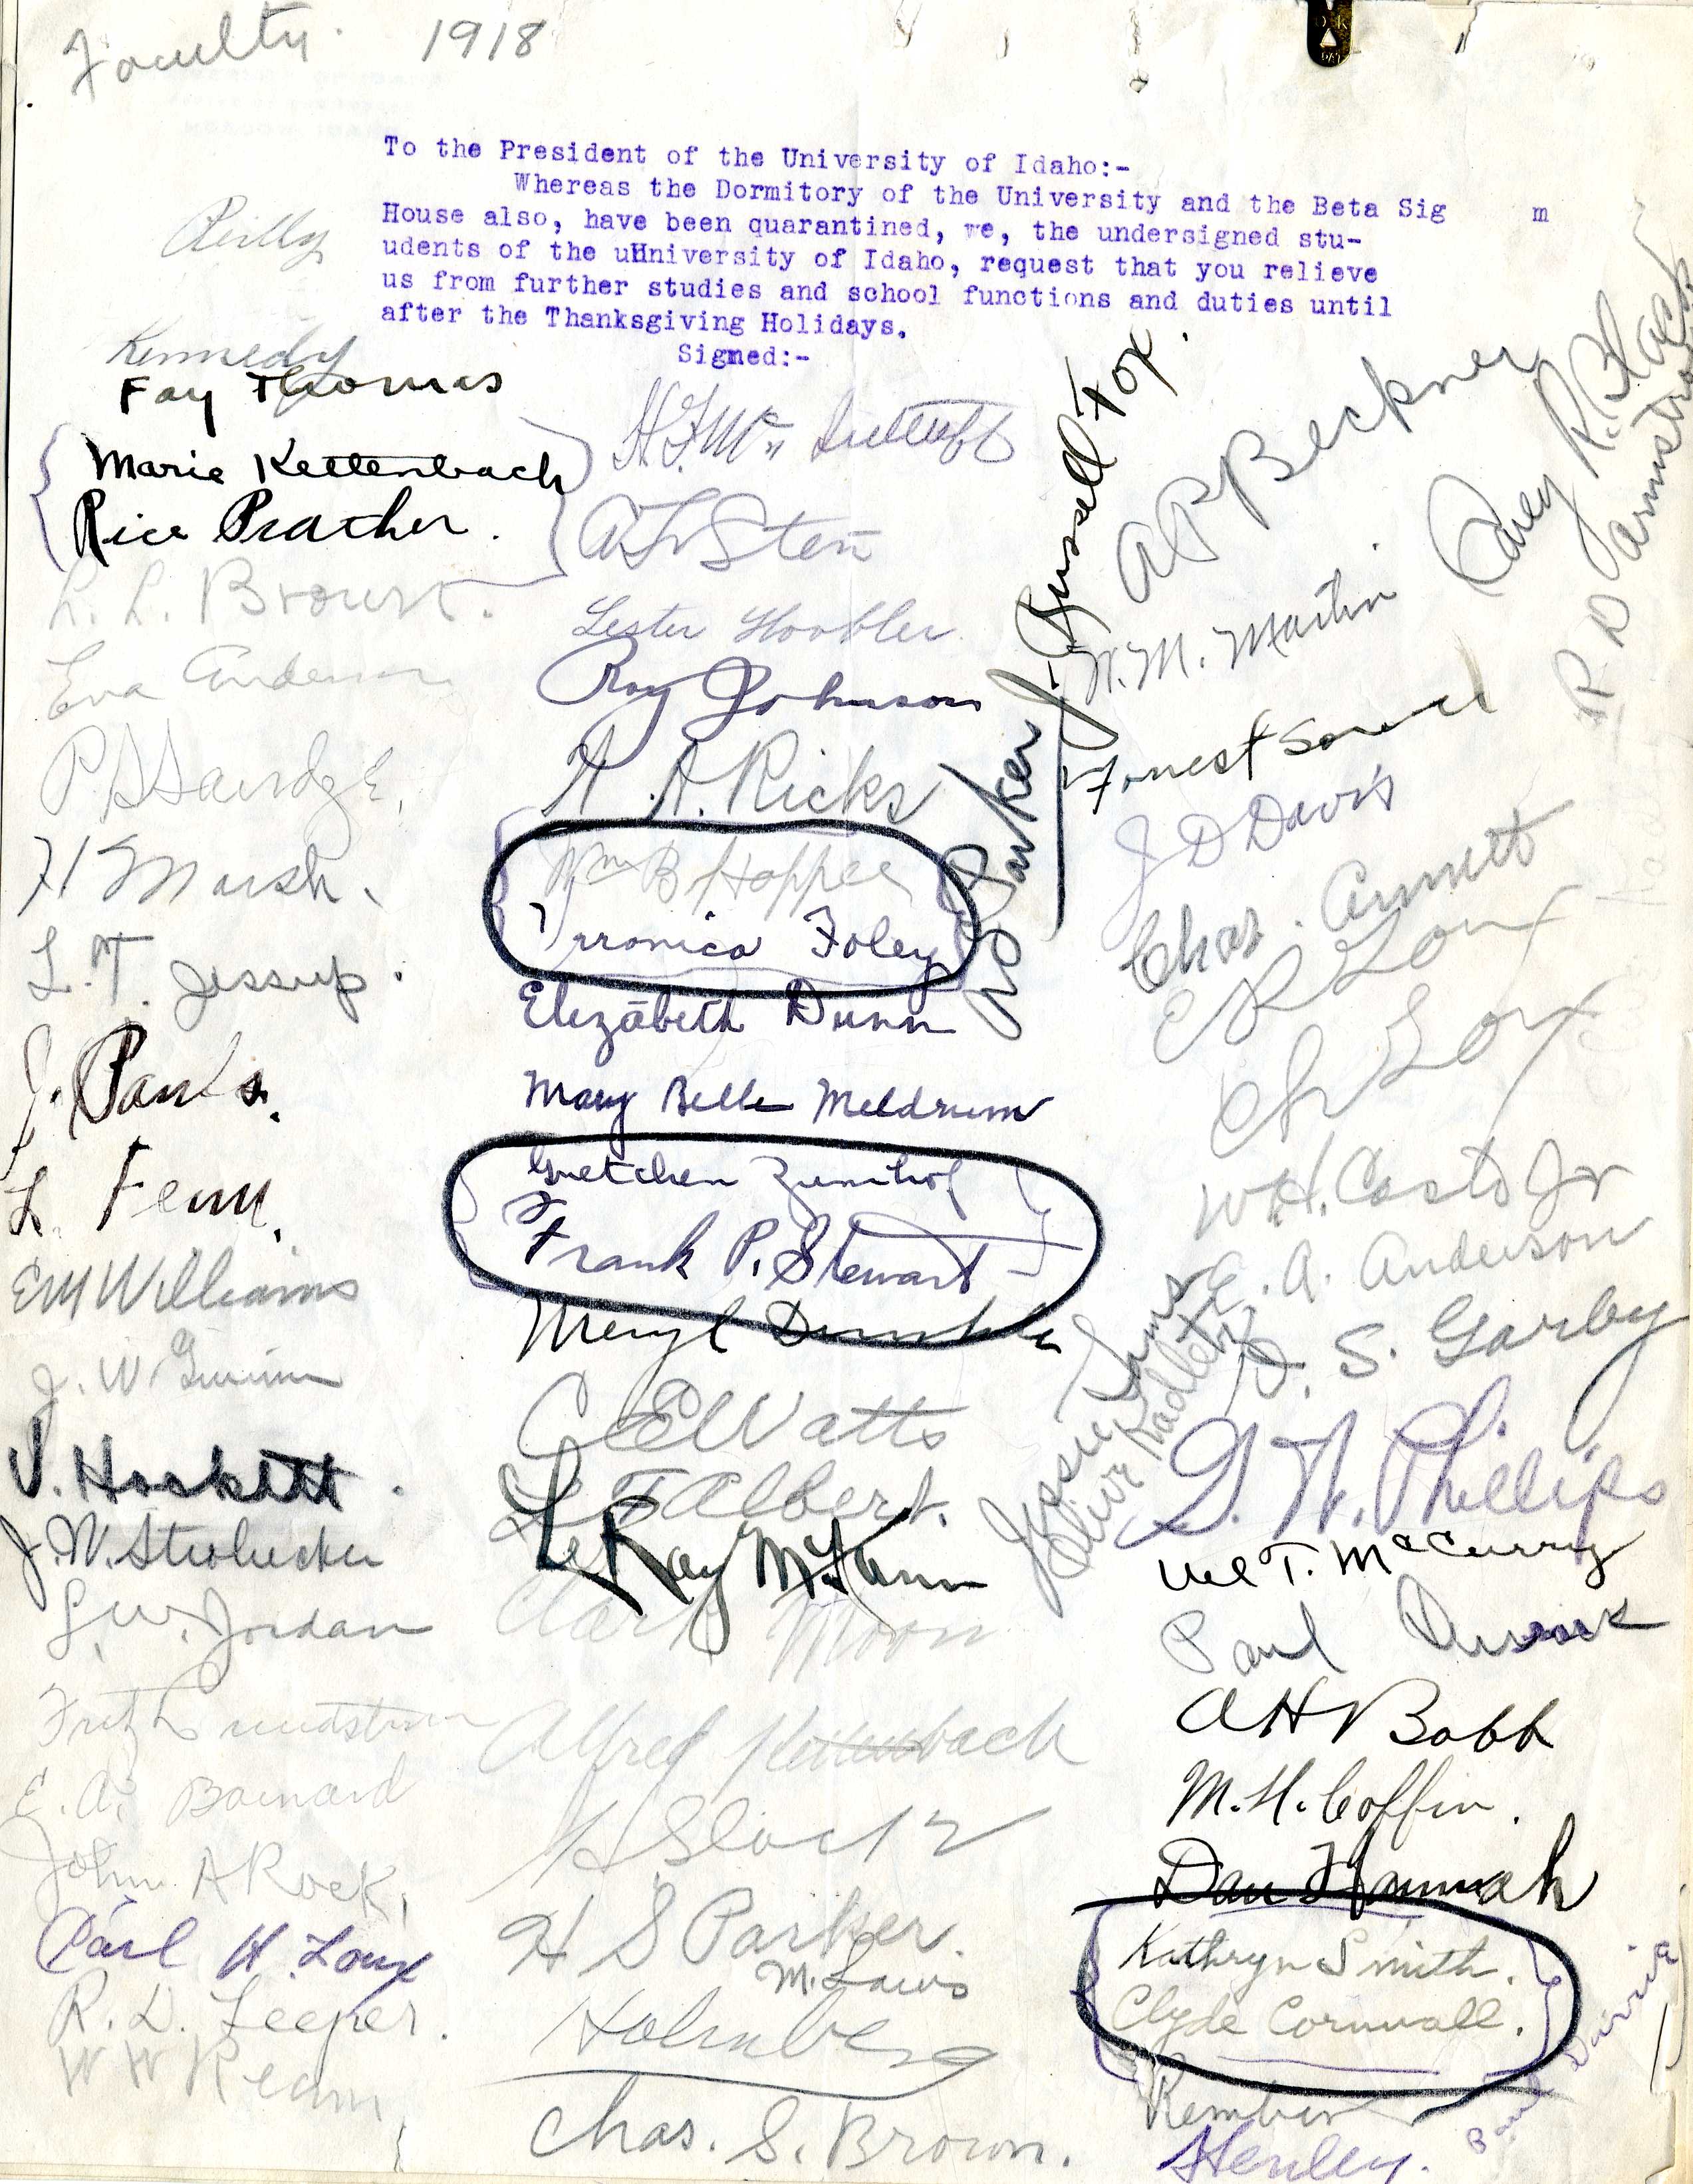 Faculty. 1918
To the President of the University of Idaho:-
Whereas the Dormitory of the University and the Beta Sig m
House also, have been quarantined, we, the undersigned stu-
udents of the uUniversity of Idaho, request that you relieve
us from further studies and school functions and duties until
after the Thanksgiving Holidays.
Signed:-
Reilly
Kennedy
Fay Thomas
Marie Kettenbach
Rice Prather.
L. L. Brown.
Eva Anderson
P.
H Marsh.
L.T. Jessup.
J.
L. Fenn.
EM Williams
J. W.
J. Hoskett.
J.W. Strohecker
L.W. Jordan
Fritz
E. A. Barnard
John A Rock,
Carl H. Loux
R. D. Leeper.
W W Ream,
A L Sten
Lester Hoobler
Roy Johnson
A. Ricks
Wm B Hopper
Veronica Foley
Elizabeth Dunn
Mary Belle Meldrum
Gretchen Zumhof
Frank P. Stewart
Meryl Dunkle
C E Watts
L T Albert.
LeRoy
Clark Moon
Alfred Kettenbach
Slack
H S Parker.
M. Laws
Holmberg
Chas. S. Brown.
Parker
J. Russell Fox.
A P Beckner
Carey R. Black
R D Armstrong
M. Martin
Forrest
J D Davis
Chas.
C R Loux
W.H. Casto Jr
E. A. Anderson
S. Garby
Jessie
Olive
Phillips
T. McCurry
Paul
A H Bobb
M.H. Coffin.
Dan Hannah
Kathryn Smith.
Clyde Cornwall.
Rember
Henley.